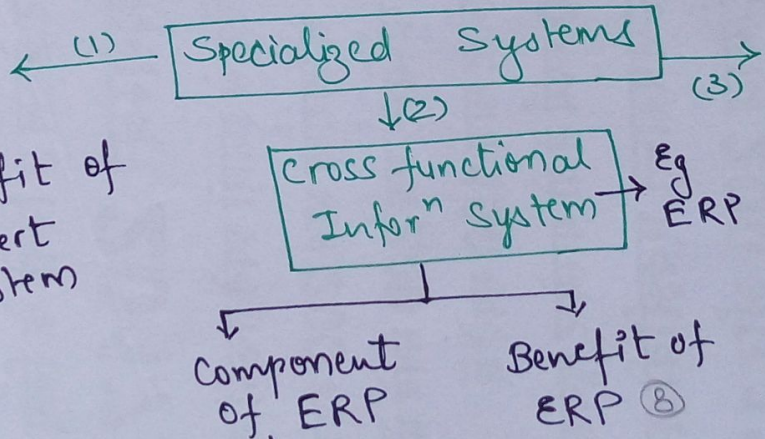 (1)
Specialized Systems
(3)
(2)
fit of
ert
stem
Cross functional
Inforⁿ System
Eg
ERP
Component
of ERP
Benefit of
ERP ⑧